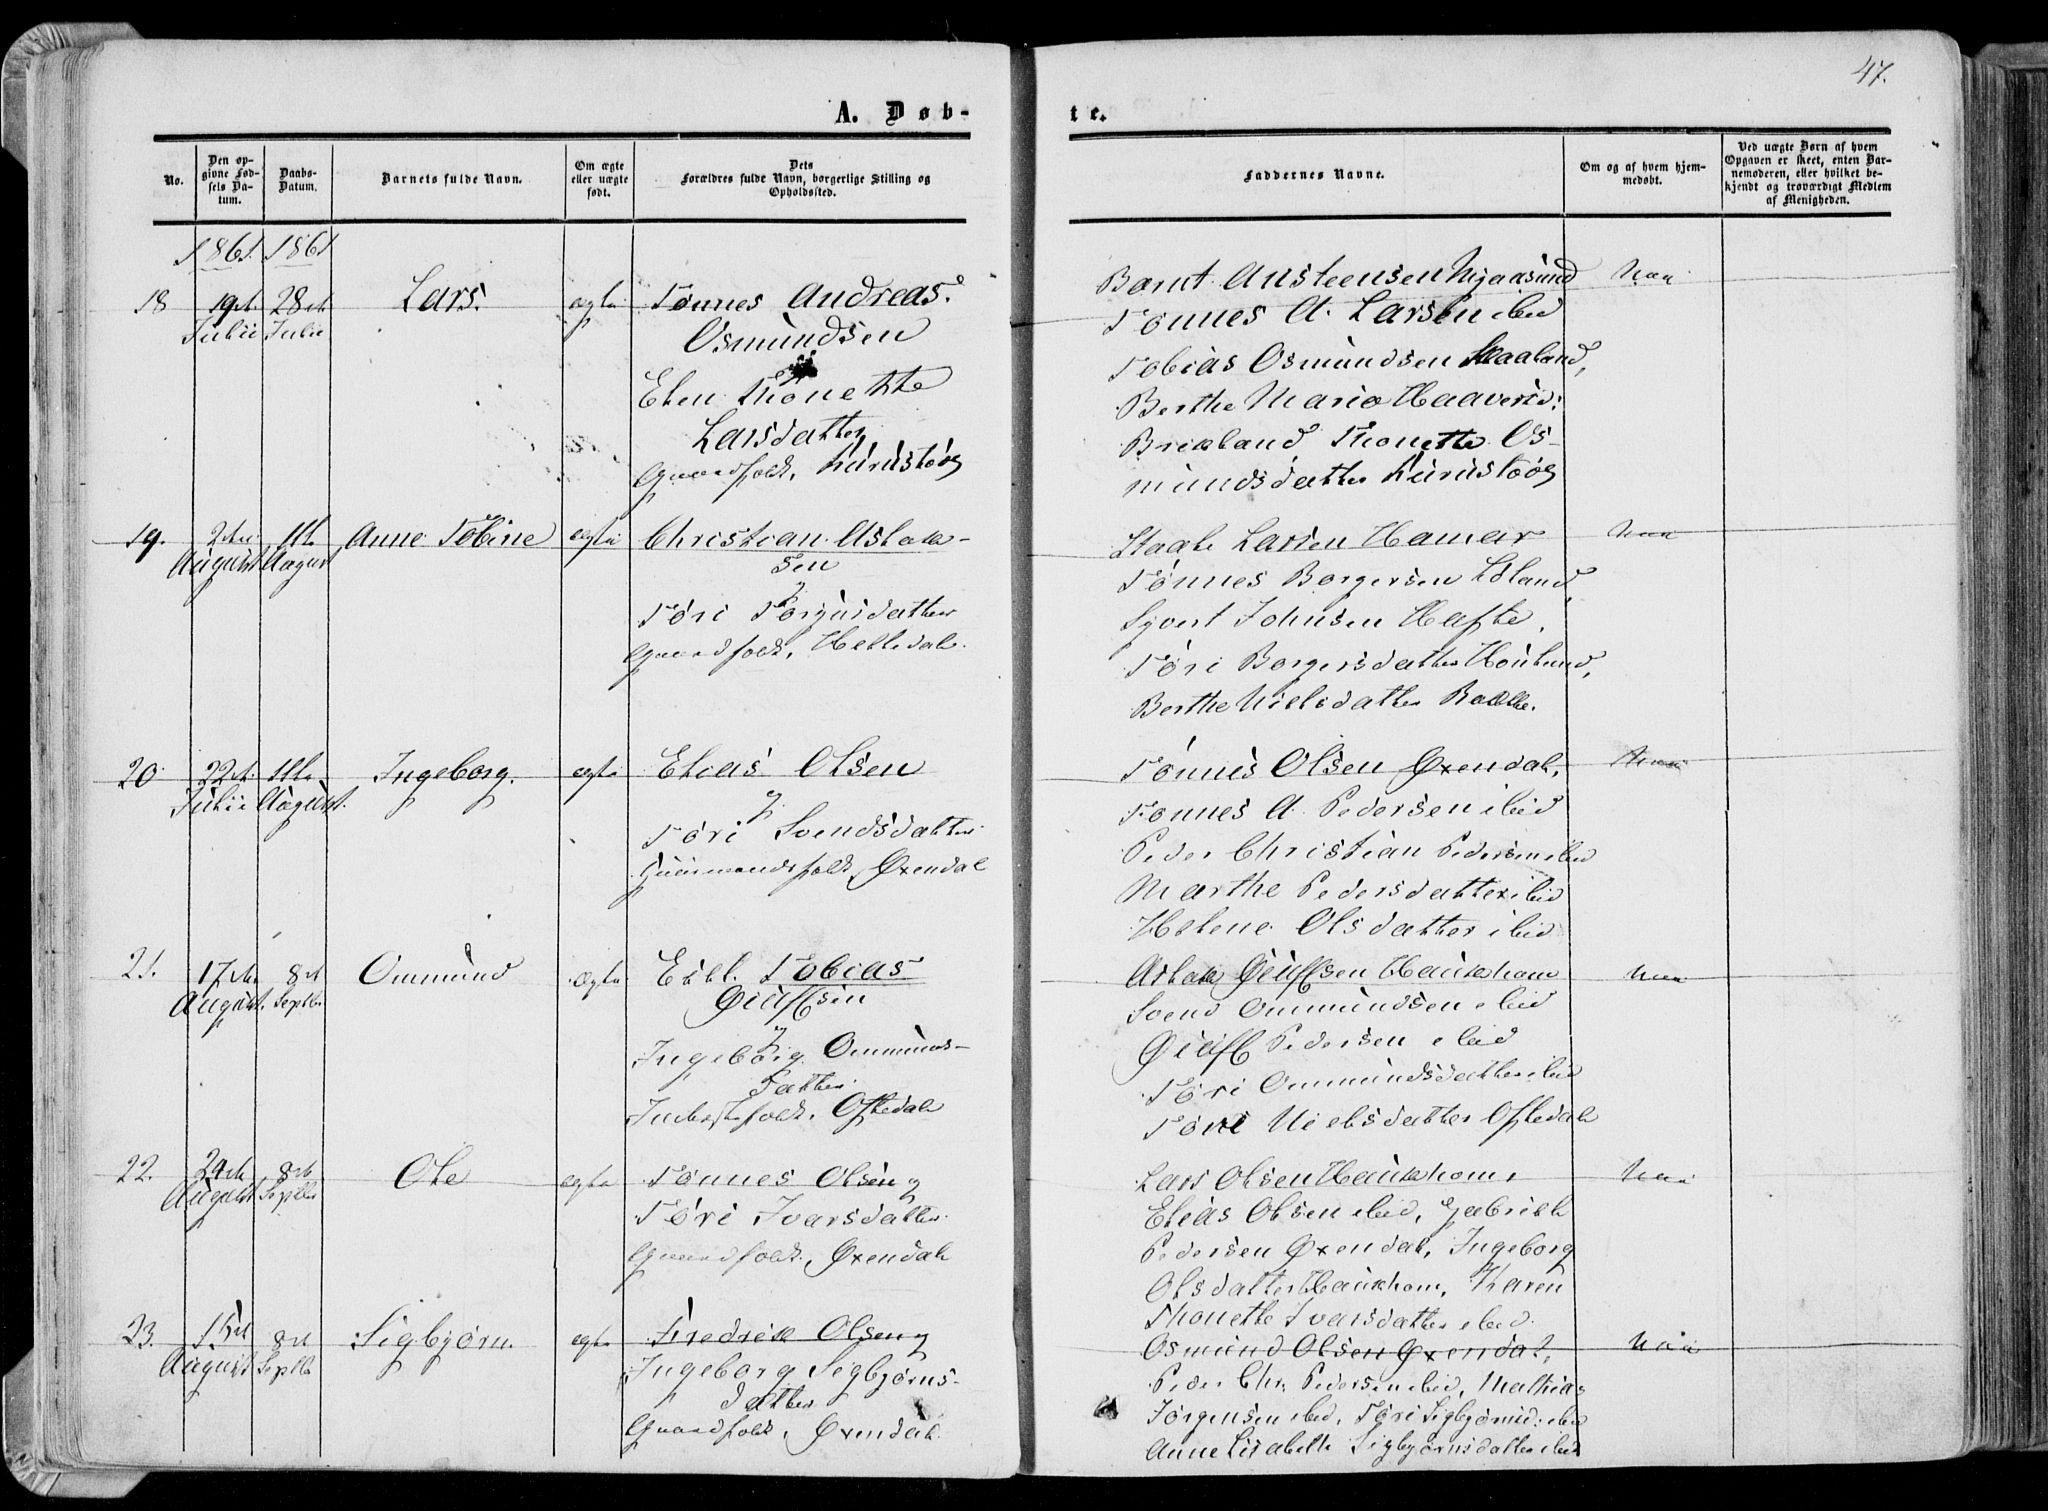 47.
A. Døb-
te.
No.
Den op-
givne Fød-
sels Da-
tum.
Daabs-
Datum.
Barnets fulde Navn.
Om ægte
eller uægte
født.
Dets
Forældres fulde Navn, borgerlige Stilling og
Opholdssted.
Faddernes Navne.
Om og af hvem hjem-
medøbt.
Ved uægte Børn af hvem
Opgaven er skeet, enten Bar-
nemoderen, eller hvilket be-
kjendt og troværdigt Medlem
af Menigheden.
1861. 1861
18 19de 28de Lars. ægte Tønnes Andreas
Julii Julii
Osmundsen
Elen Thonette
Larsdatter
Gaardfolk,
Bernt Ansteensen
Tønnes A. Larsen ibid
Tobias Osmundsen Skaaland,
Berthe Maria Haaversd:
Birkeland Thonette Os-
mundsdatter
Nei
19. 2den 11te Anne Tobine ægte Christian Aslak-
August August
sen
&
Tøri Torgersdatter
Gaardfolk, Helledal.
Staale Larsen Hamar
Tønnes Borgersen Eeland,
Syvert Johnsen Hafte,
Tøri Borgersdatter Houland,
Berthe Nielsdatter Bakke.
Nei
20 22de 11te Ingeborg. ægte Elias Olsen
Julii August.
&
Tøri Svendsdatter
Huusmandsfolk, Øxendal
Tønnes Olsen Øxendal,
Tønnes A. Pedersen ibid
Peder Christian Pedersen ibid
Marthe Pedersdatter ibid
Helene Olsdatter ibid
Nei
21. 17de 8de Ommund ægte Eill. Tobias
August. Septbr
Øiulfsen
&
Ingeborg Ommunds-
datter
Inderstfolk, Oftedal
Aslak Øiulfsen Haukhom
Svend Ommundsen ibid
Øiulf Pedersen ibid
Tøri Ommundsdatter ibid
Tøri Nielsdatter Oftedal
Nei
22. 24de 8de Ole ægte Tønnes Olsen &
August Septbr
Tøri Ivarsdatter
Gaardfolk, Øxendal
Lars Olsen Haukhom,
Elias Olsen ibid, Gabriel
Pedersen Øxendal, Ingeborg
Olsdatter Haukhom, Karen
Thonette Ivarsdatter ibid.
Nei
23. 15de 8de Sigbjørn. ægte Fredrik Olsen &
August Septbr
Ingeborg Segbjørns-
datter
Gaardfolk, Øxendal
Osmund Olsen Øxendal,
Peder Chr. Pedersen ibid, Mathias
Jørgensen ibid, Tøri Sigbjørnsd. ibid
Anne Lisabeth Sigbjørnsdatter ibid
Nei